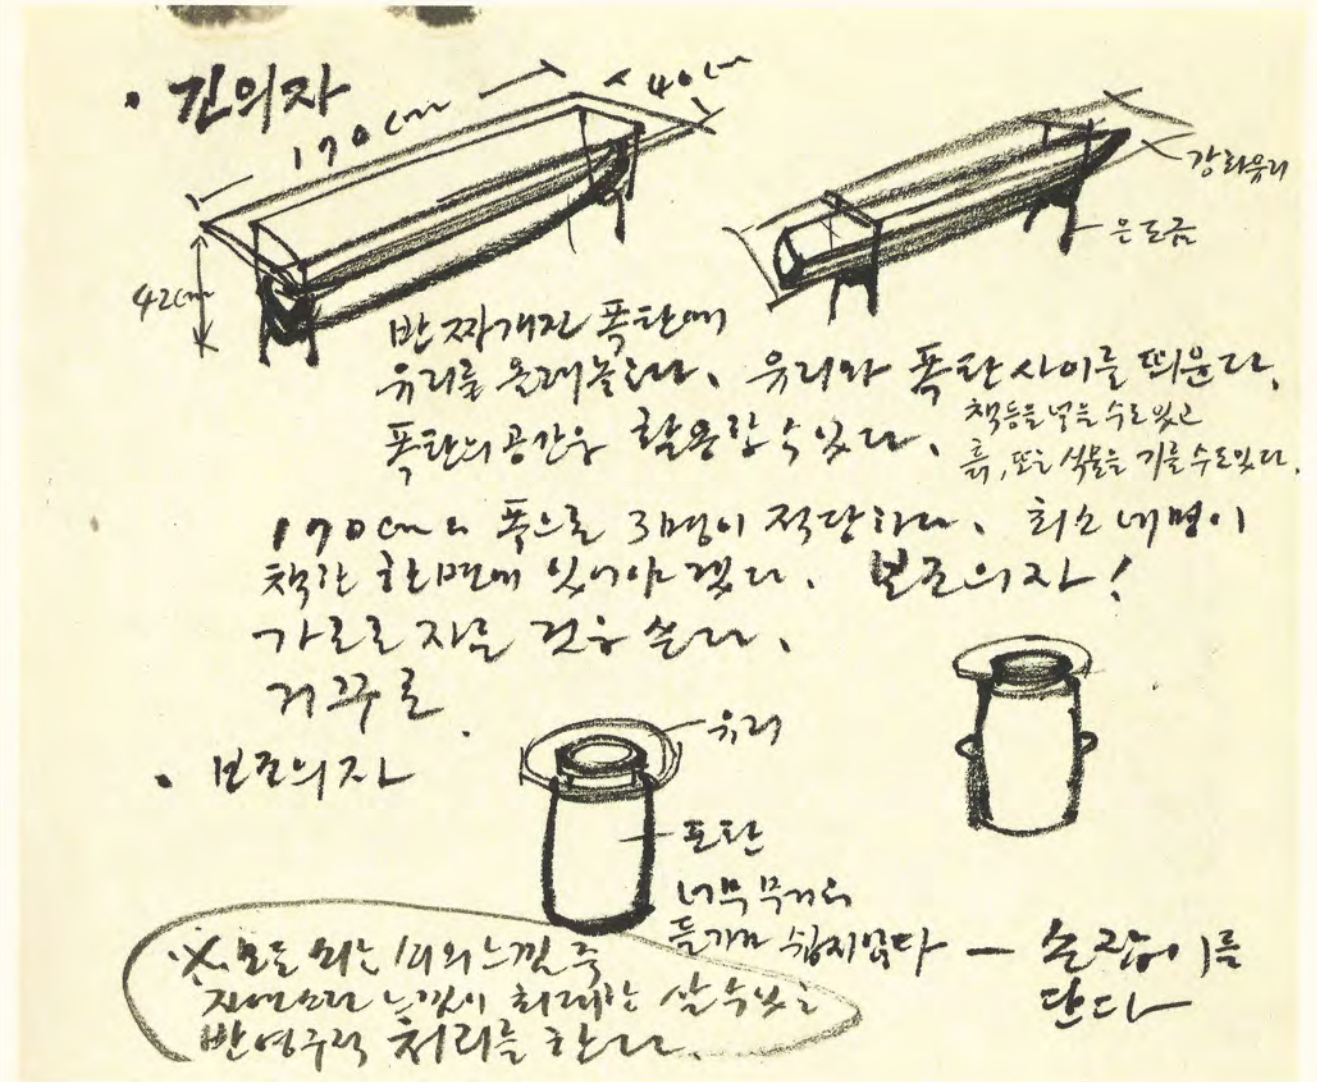 · 긴의자
170cm
40cm
42cm
강화유리
은도금
반 짜개진 폭탄에
유리를 올려놓는다. 유리와 폭탄 사이를 띄운다.
폭탄의 공간을 활용할 수 있다. 책등을 넣을 수도 있고
흙, 또는 식물을 기를 수도 있다.
170cm의 폭으로 3명이 적당하다. 최소 네명이
책상 한면에 있어야겠다. 보조의자!
가로로 자른 것을 쓴다.
거꾸로.
· 보조의자
유리
포탄
너무 무거워
들기가 쉽지않다 — 손잡이를
단다
※ 모든 외부의 느낌은
느낌이 최대한 살 수 있는
반영구적 처리를 한다.